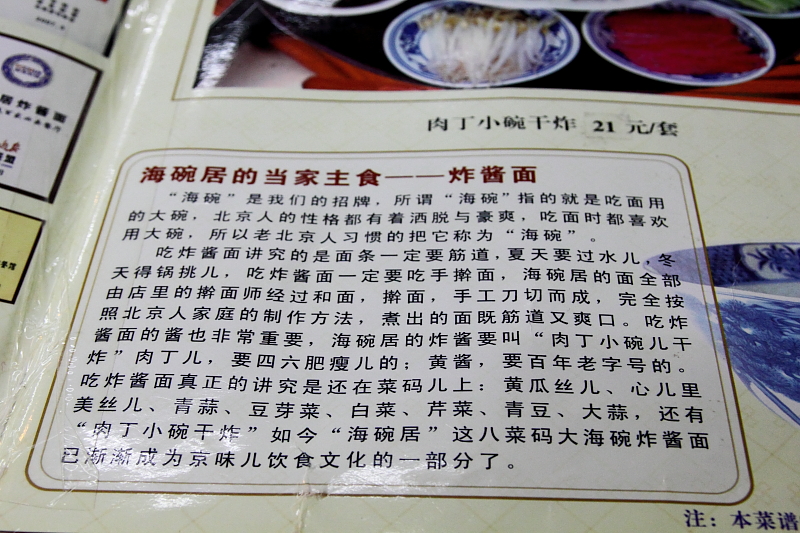 居炸酱面
肉丁小碗干炸 21 元/套
海碗居的当家主食——炸酱面
“海碗”是我们的招牌，所谓“海碗”指的就是吃面用
的大碗，北京人的性格都有着洒脱与豪爽，吃面时都喜欢
用大碗，所以老北京人习惯的把它称为“海碗”。
吃炸酱面讲究的是面条一定要筋道，夏天要过水儿，冬
天得锅挑儿，吃炸酱面一定要吃手擀面，海碗居的面全部
由店里的擀面师经过和面，擀面，手工刀切而成，完全按
照北京人家庭的制作方法，煮出的面既筋道又爽口。吃炸
酱面的酱也非常重要，海碗居的炸酱要叫“肉丁小碗儿干
炸”肉丁儿，要四六肥瘦儿的；黄酱，要百年老字号的。
吃炸酱面真正的讲究是还在菜码儿上：黄瓜丝儿、心儿里
美丝儿、青蒜、豆芽菜、白菜、芹菜、青豆、大蒜，还有
“肉丁小碗干炸”如今“海碗居”这八菜码大海碗炸酱面
已渐渐成为京味儿饮食文化的一部分了。
注：本菜谱